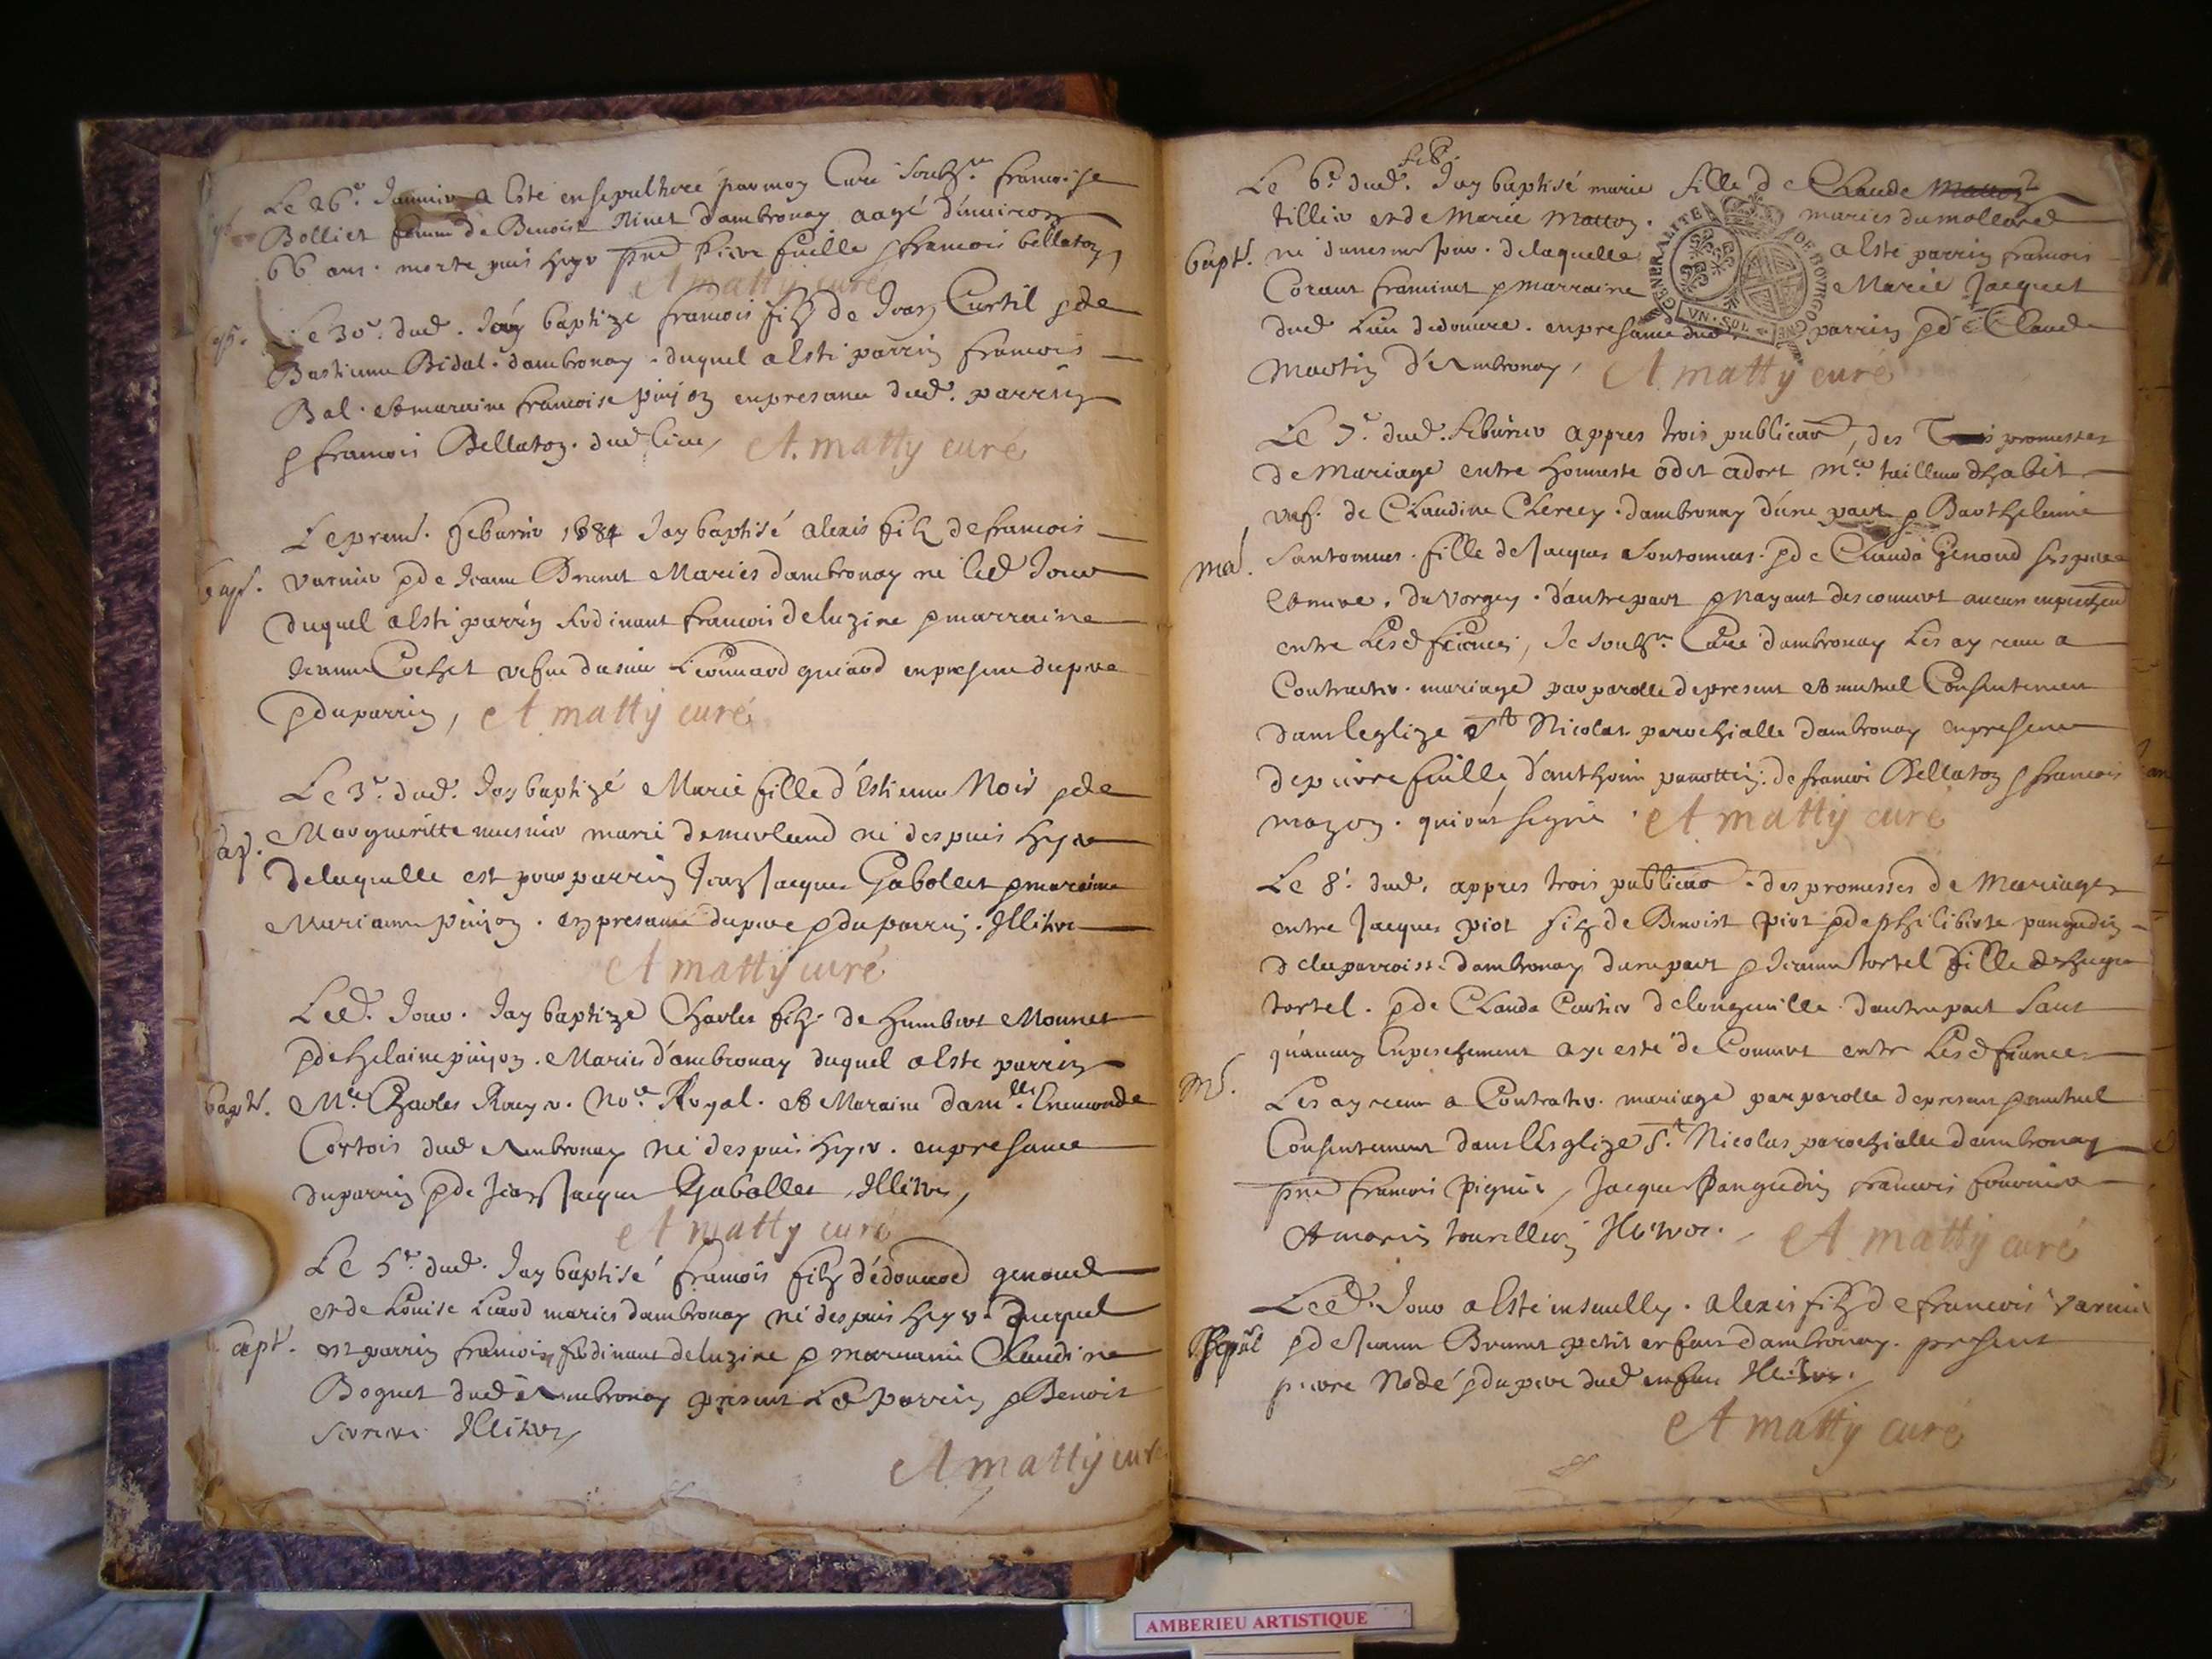 Le 26e Janvier a Esté ensepulturée par moy Curé soubsné francoise
Bolliet femme de Benoist Ninet d'ambronay aagé d'environ
66 ans. morte puis hyer pnt pierre fuille & francois bellaton,
A matty curé
Le 30e dud. Jay baptize francois filz de Jean Curtil & de
Bastienne Bidal. dambronay. duquel a Esté parrin francois
Bal. et maraine francoise pinjon en presance dud. parrin
& francois Bellaton. dud lieu, A. matty curé
Le premr. feburier 1684 Jay baptisé alexis filz de francois
bapt. varnier & de Jeanne Brunet Mariés dambronay né led Jour
duquel a Esté parrin ferdinant francois deluzine & marraine
Jeanne Cochet vefve du sieur Leonnard guiard en presence du pere
& du parrin, A matty curé
Le 3e dud. Jay baptizé Marie fille d'Estienne Noir & de
bap. Margueritte musnier mariés de merland né despuis hyer
delaquelle est pour parrin Jean Jacques Gabollet & maraine
Marianne pinjon. en presance du pere & du parrin. Illitere
A matty curé
Led. Jour. Jay baptize Charles filz de humbert Monnet
& de helaine pinjon. Mariés d'ambronay duquel a Este parrin
bapt. Me. Charles Rouyer. Nore Royal. et Maraine damlle Enemonde
Cortois dud Ambronay né despuis hyer. en presance
du parrin & de Jean Jacque Gabollet, Illitere,
A matty curé
Le 5e dud. Jay baptisé francois filz d'édouard genoud
et de Louise Liard mariés dambronay né despuis hyer. duquel
bapt. est parrin francois ferdinant deluzine & marraine Claudine
Boguet dud Ambronay present Led parrin & Benoit
Illitere,
A matty curé
feb.
Le 6e dud. Jay baptisé marie fille de Claude
tillier et de Marie Matton. mariés du mollard
bapt. né dumesme jour. delaquelle a Esté parrin francois
Corant & marraine Marie Jacquet
dud Lieu en presance dud parrin & de Claude
Martin d'Ambronay, A matty curé
GENERALITE DE BOVRGOGNE
VN. SOL
Le 7e dud. feburier appres trois publicaon, des promesses
de Mariage entre honneste odet adort mre tailleur dhabit
vef. de Claudine Clercy. dambronay d'une part & Barthelemie
mar. Santonnas. fille de Jacques Santonnas. & de Clauda Genoud ses pere
et mere. du Vorgey. d'autre part & nayant descouvert aucun
entre Lesd fiancés, Je soubsné Curé dambronay Les ay receu a
Contracter. mariage par parolle de present et mutuel Consentement
dans leglize St Nicolas parochialle dambronay en presence
de pierre fuille, d'anthoine panottin. de francois Bellaton & francois
mazon. qui ont signé. A matty curé
Le 8e dud. appres trois publicaon. des promesses de Mariage
entre Jacques piot filz de Benoist piot & de philiberte pangudin
de la parroisse dambronay dune part & Jeanne tortel fille de hugue
tortel. & de Clauda Curtier de longeville dautre part Sans
qu'aucun Enpeschement aye esté de Couvert entre Lesd fiances
mr. Les ay receu a Contracter. mariage par parolle de present & mutuel
Consentement dans lEsglize St. Nicolas parochialle dambronay
pnt francois pignier, Jacque Pangudin francois fournier
et marin tourillon Illitere. A matty curé
Led. Jour a Esté insevelly. alexis filz de francois varnier
Sepul & de Jeanne Brunet petit enfant dambronay. present
pierre Nodé & du pere dud enfant Illitere.
A matty curé
AMBERIEU ARTISTIQUE